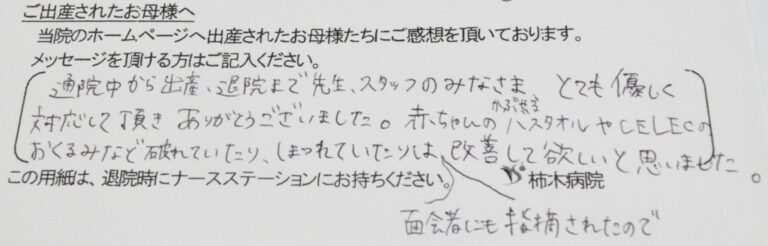 ご出産されたお母様へ
当院のホームページへ出産されたお母様たちにご感想を頂いております。
メッセージを頂ける方はご記入ください。
通院中から出産、退院まで先生、スタッフのみなさま とても優しく
対応して頂き ありがとうございました。赤ちゃんの バスタオルやCELECの
おくるみなど破れていたり、しまつれていたりは、改善して欲しいと思いました。
この用紙は、退院時にナースステーションにお持ちください。 柿木病院
面会者にも指摘されたので